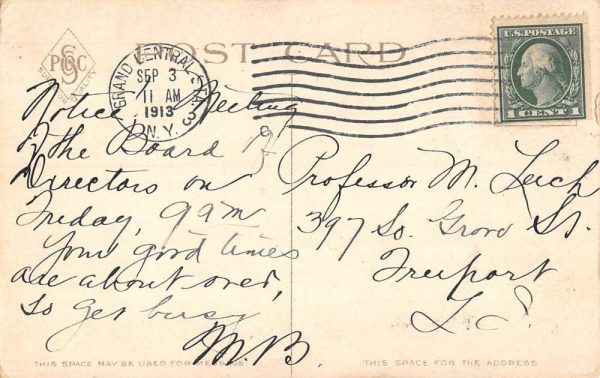 POST CARD
U.S. POSTAGE
1 CENT 1
GRAND CENTRAL STA. 3
SEP 3
11 AM
1913
N.Y.
Notice Meeting
of the Board of
Directors on
Friday, 9 am
Your good times
are about over,
so get busy
M.B.
Professor M. Leich
397 So. Grove St.
Freeport
L. I.
THIS SPACE MAY BE USED FOR MESSAGE
THIS SPACE FOR THE ADDRESS